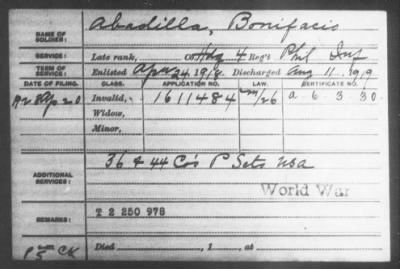 NAME OF SOLDIER: Abadilla, Bonifacio
SERVICE: Late rank, Co Hdq 4 Reg't Phil Inf
TERM OF SERVICE: Enlisted Apr 24, 1918, Discharged Aug 11, 1919
DATE OF FILING. CLASS. APPLICATION NO. LAW. CERTIFICATE NO.
Ap 20 Invalid, 1611484 /26 a 6 3 30
Widow,
Minor,
ADDITIONAL SERVICES: 36 & 44 Co's P Scts USA
World War
REMARKS: T 2 250 978
Died , 1 , at